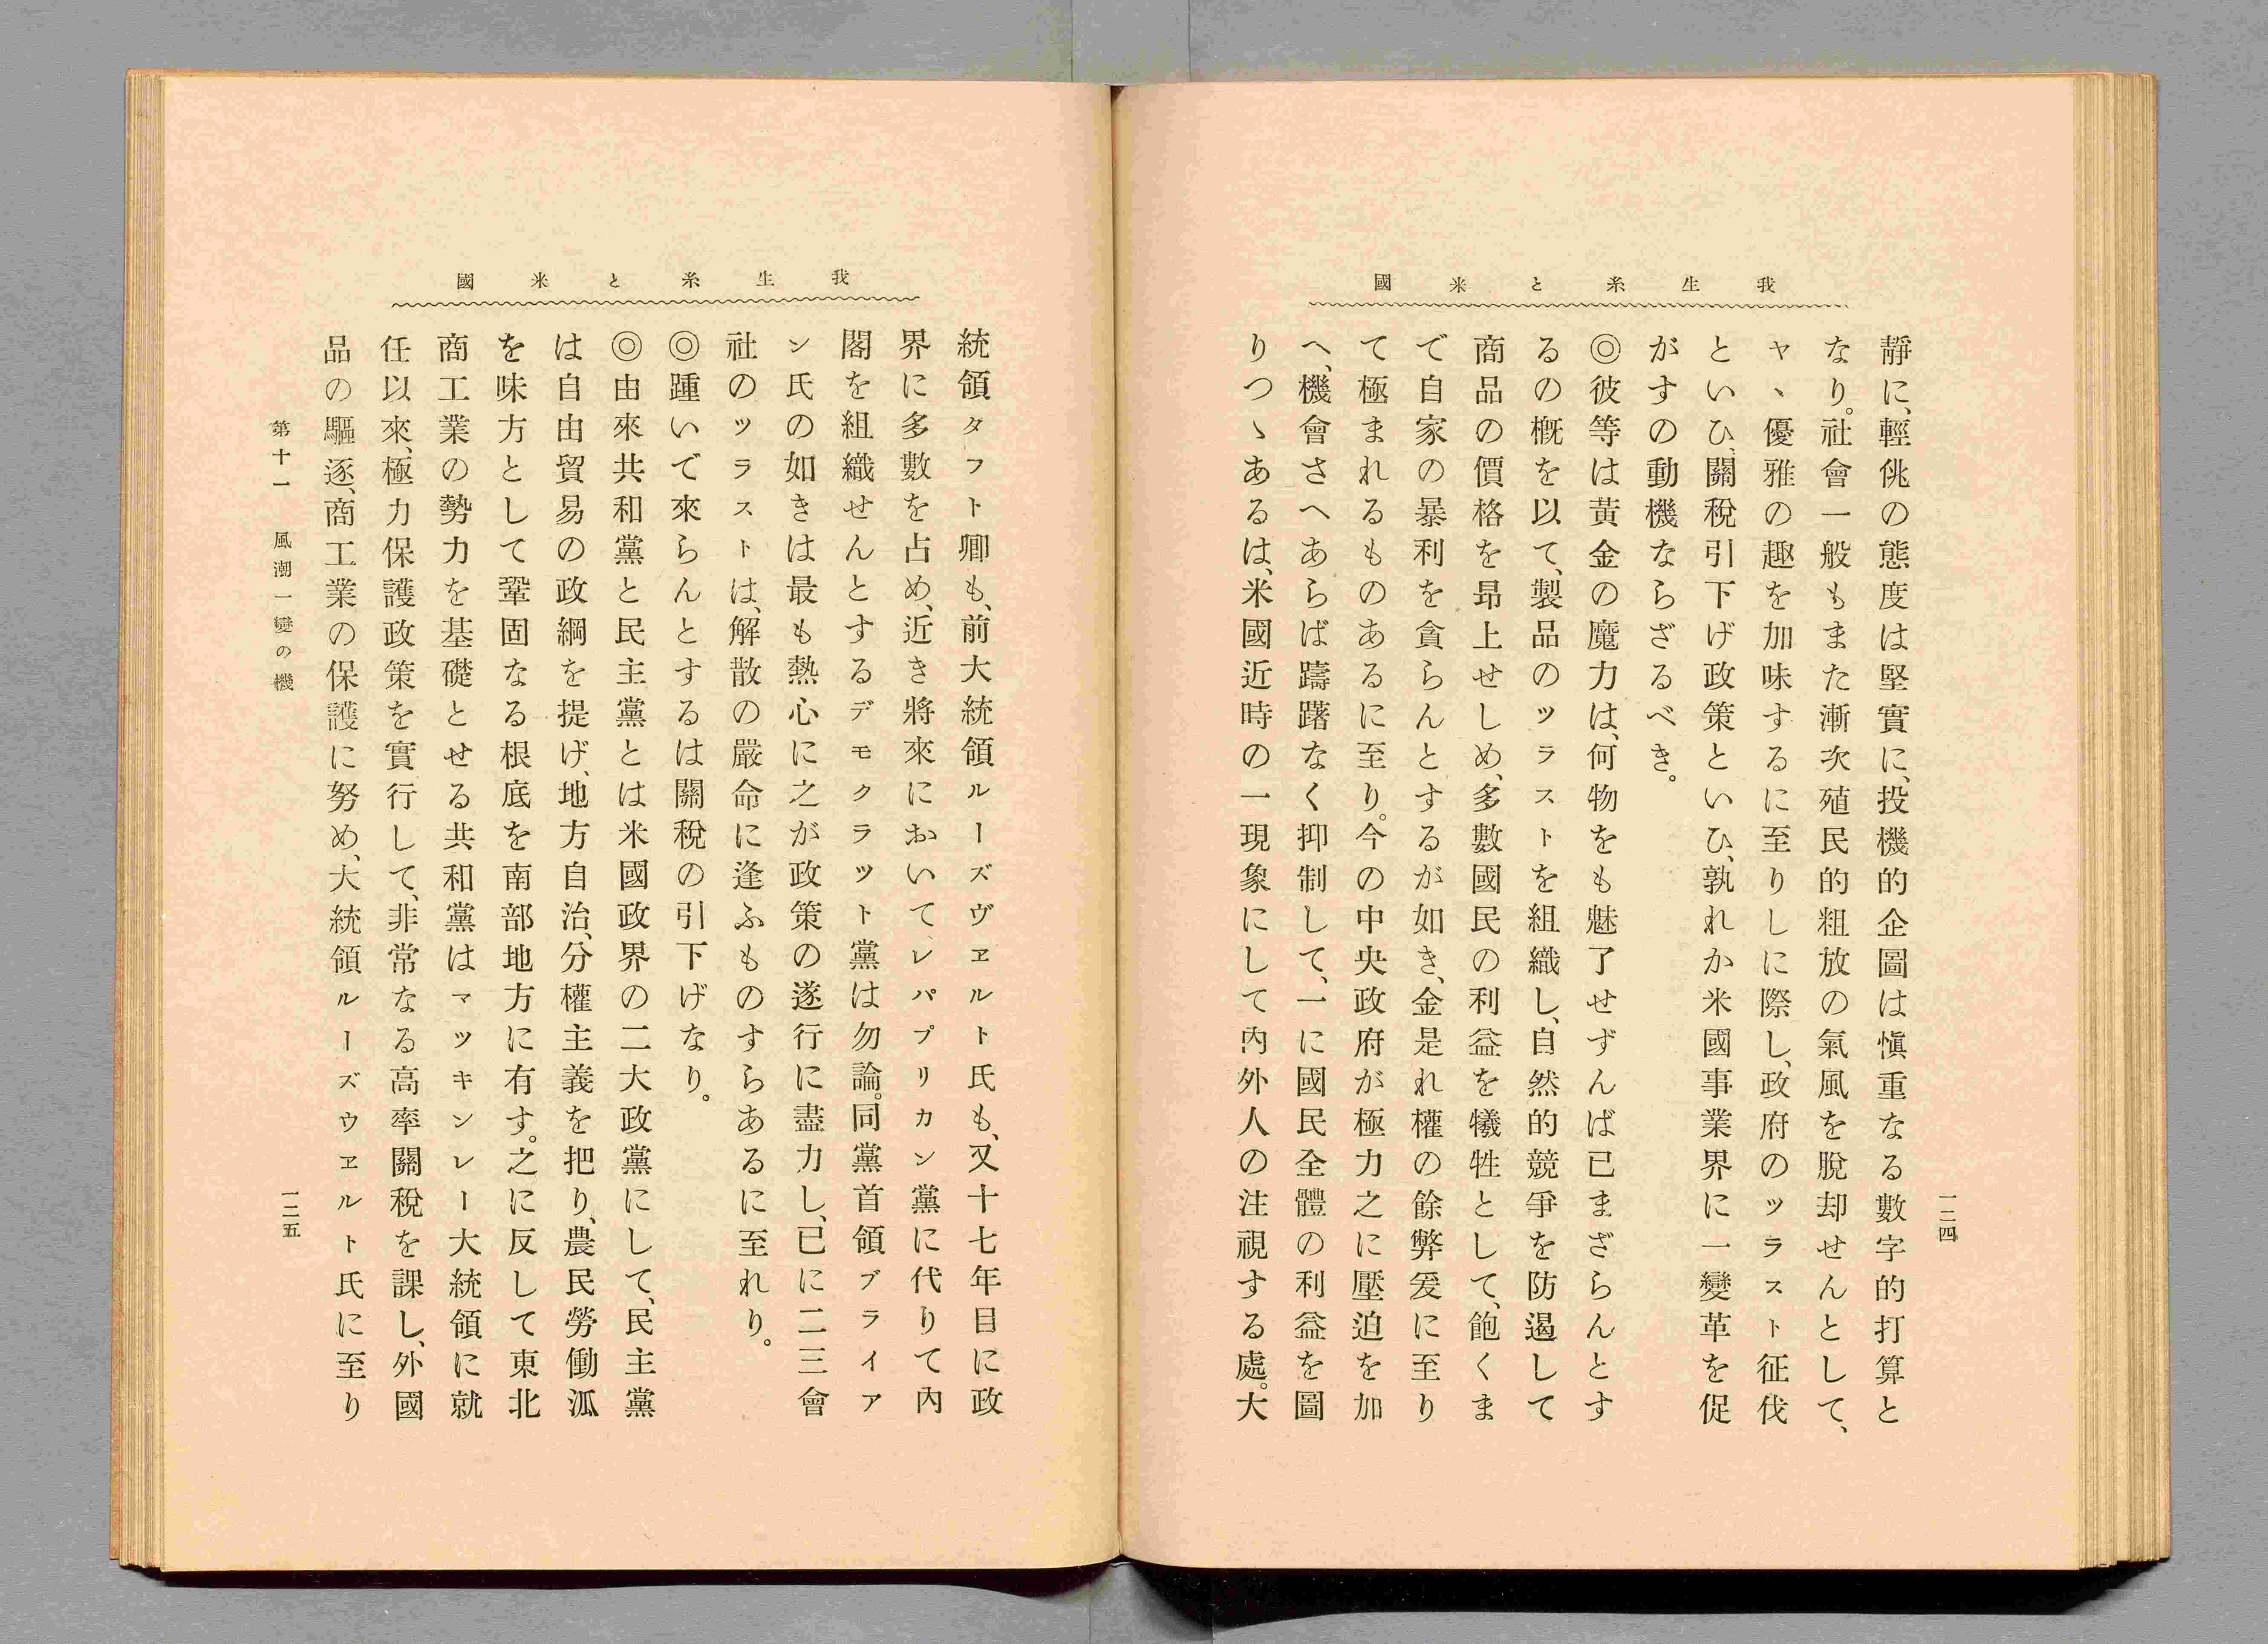 我生糸と米國
一二四
靜に、輕佻の態度は堅實に、投機的企圖は愼重なる數字的打算と
なり。社會一般もまた漸次殖民的粗放の氣風を脫却せんとして、
ヤヽ優雅の趣を加味するに至りしに際し、政府のツラスト征伐
といひ、關稅引下げ政策といひ、孰れか米國事業界に一變革を促
がすの動機ならざるべき。
◎彼等は黃金の魔力は、何物をも魅了せずんば已まざらんとす
るの槪を以て、製品のツラストを組織し、自然的競爭を防遏して
商品の價格を昻上せしめ、多數國民の利益を犧牲として、飽くま
で自家の暴利を貪らんとするが如き、金是れ權の餘弊爰に至り
て極まれるものあるに至り。今の中央政府が極力之に壓迫を加
へ、機會さへあらば躊躇なく抑制して、一に國民全體の利益を圖
りつゝあるは、米國近時の一現象にして內外人の注視する處。大
我生糸と米國
統領タフト卿も、前大統領ルーズヴヱルト氏も、又十七年目に政
界に多數を占め、近き將來においてレパプリカン黨に代りて內
閣を組織せんとするデモクラツト黨は勿論。同黨首領ブライア
ン氏の如きは最も熱心に之が政策の遂行に盡力し、已に二三會
社のツラストは、解散の嚴命に逢ふものすらあるに至れり。
◎踵いで來らんとするは關稅の引下げなり。
◎由來共和黨と民主黨とは米國政界の二大政黨にして、民主黨
は自由貿易の政綱を提げ、地方自治、分權主義を把り、農民勞働派
を味方として鞏固なる根底を南部地方に有す。之に反して東北
商工業の勢力を基礎とせる共和黨はマツキンレー大統領に就
任以來、極力保護政策を實行して、非常なる高率關稅を課し、外國
品の驅逐、商工業の保護に努め、大統領ルーズウヱルト氏に至り
第十一 風潮一變の機
一二五